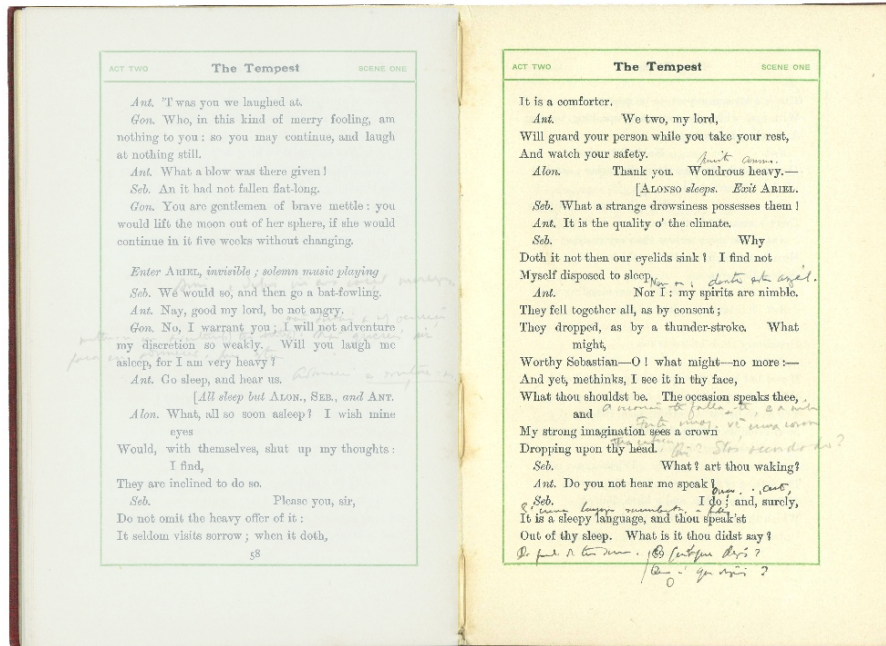 ACT TWO The Tempest SCENE ONE
Ant. 'T was you we laughed at.
Gon. Who, in this kind of merry fooling, am
nothing to you : so you may continue, and laugh
at nothing still.
Ant. What a blow was there given !
Seb. An it had not fallen flat-long.
Gon. You are gentlemen of brave mettle : you
would lift the moon out of her sphere, if she would
continue in it five weeks without changing.
Enter ARIEL, invisible ; solemn music playing
Seb. We would so, and then go a bat-fowling.
Ant. Nay, good my lord, be not angry.
Gon. No, I warrant you ; I will not adventure
my discretion so weakly. Will you laugh me
asleep, for I am very heavy ?
Ant. Go sleep, and hear us.
[All sleep but ALON., SEB., and ANT.
Alon. What, all so soon asleep ! I wish mine
eyes
Would, with themselves, shut up my thoughts :
I find,
They are inclined to do so.
Seb. Please you, sir,
Do not omit the heavy offer of it :
It seldom visits sorrow ; when it doth,
58
ACT TWO The Tempest SCENE ONE
It is a comforter.
Ant. We two, my lord,
Will guard your person while you take your rest,
And watch your safety.
Alon. Thank you. Wondrous heavy.—
[ALONSO sleeps. Exit ARIEL.
Seb. What a strange drowsiness possesses them !
Ant. It is the quality o' the climate.
Seb. Why
Doth it not then our eyelids sink ? I find not
Myself disposed to sleep.
Ant. Nor I : my spirits are nimble.
They fell together all, as by consent ;
They dropped, as by a thunder-stroke. What
might,
Worthy Sebastian—O ! what might—no more :—
And yet, methinks, I see it in thy face,
What thou shouldst be. The occasion speaks thee,
and
My strong imagination sees a crown
Dropping upon thy head.
Seb. What ? art thou waking ?
Ant. Do you not hear me speak ?
Seb. I do ; and, surely,
It is a sleepy language, and thou speak'st
Out of thy sleep. What is it thou didst say ?